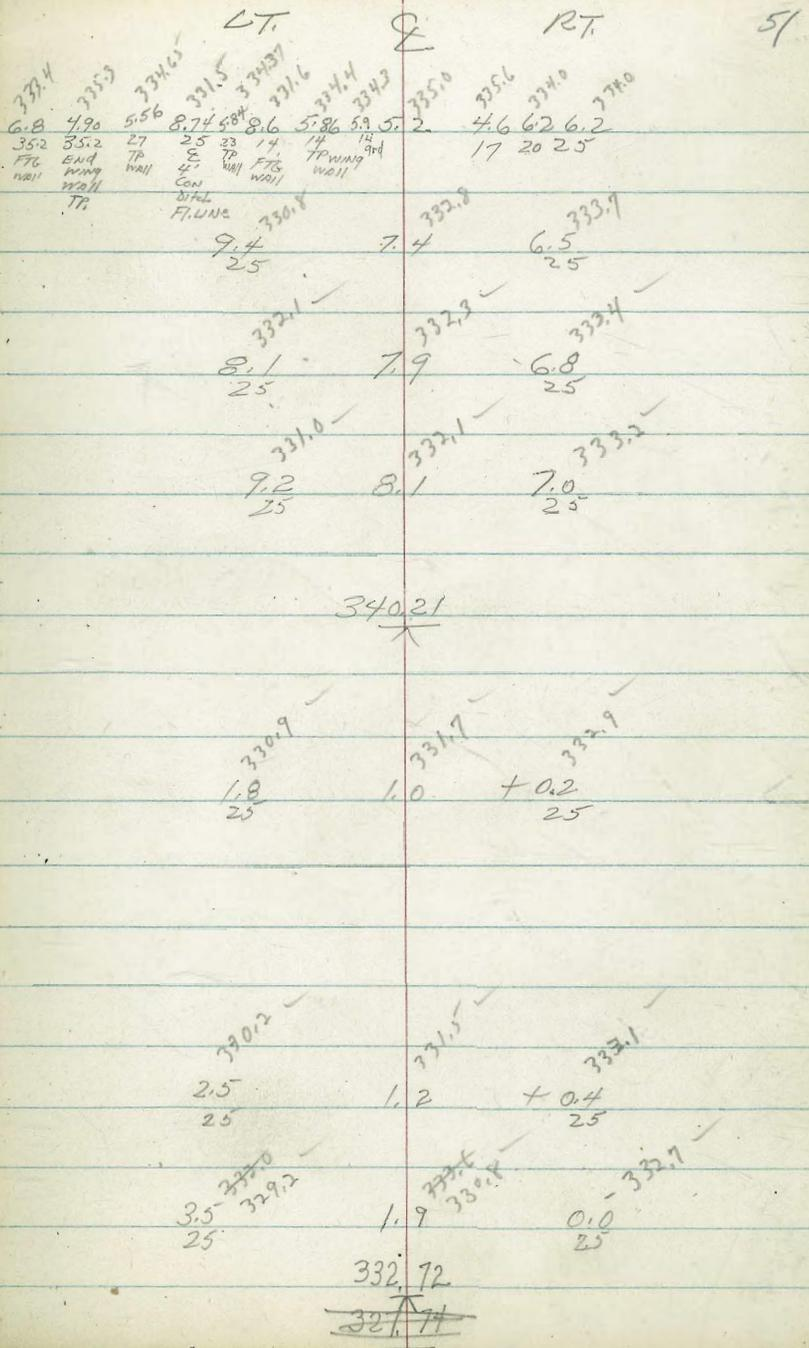 LT. ℄ RT. 51
333.4 335.3 334.65 331.5 334.37 331.6 334.4 334.3 335.0 335.6 334.0 334.0
6.8 4.90 5.56 8.74 5.84 8.6 5.86 5.9 5.2 4.6 6.2 6.2
35.2 35.2 27 25 23 14 14 14 17 20 25
FTG End TP ℄ TP FTG TP WING grd
WALL WING WALL 4' WALL WALL WALL
WALL CON
TP. Ditch
Fl. LINE
330.8 332.8 333.7
9.4 7.4 6.5
25 25
332.1 ✓ 332.3 ✓ 333.4 ✓
8.1 7.9 6.8
25 25
331.0 ✓ 332.1 ✓ 333.2 ✓
9.2 8.1 7.0
25 25
340.21
330.9 ✓ 331.7 ✓ 332.9 ✓
1.8 1.0 + 0.2
25 25
330.2 ✓ 331.5 ✓ 333.1 ✓
2.5 1.2 + 0.4
25 25
333.0 ✓ ✓ 332.7 ✓
329.2 330.8
3.5 1.9 0.0
25 25
332.72
327.74